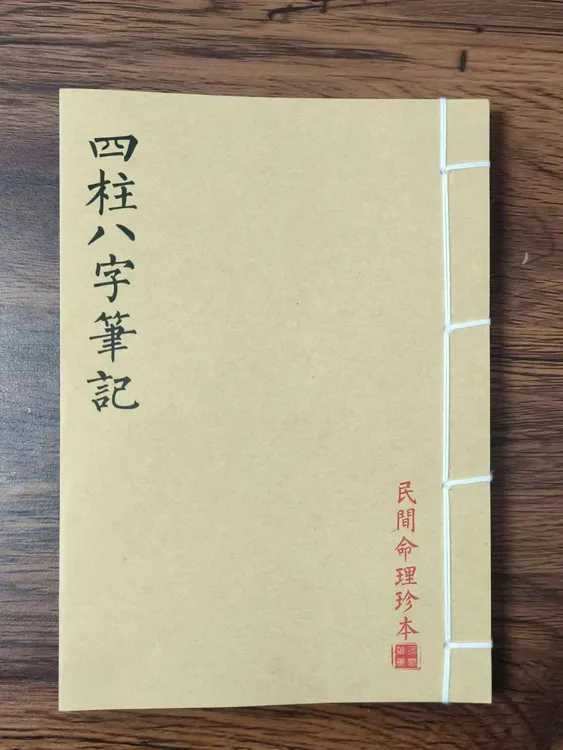 四柱八字筆記
民間命理珍本